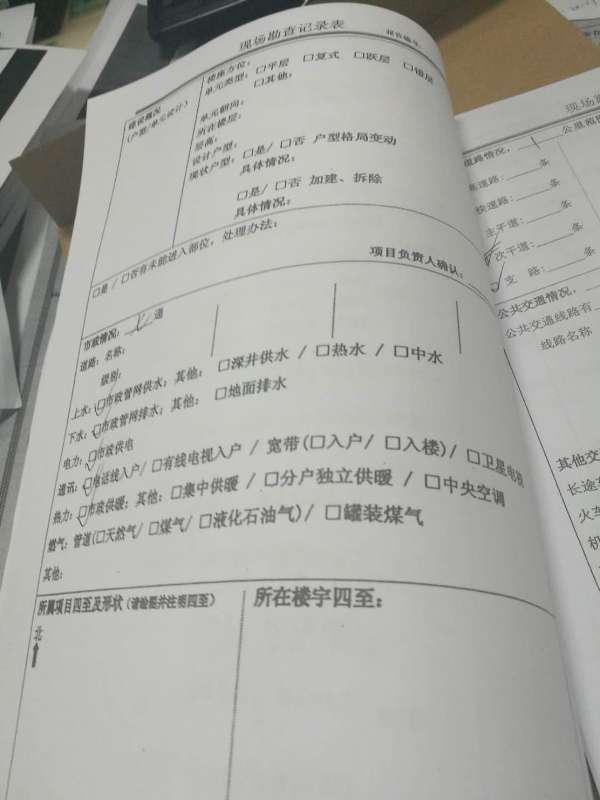 现场勘查记录表
报告编号:
建设概况
(户型/单元设计)
楼座方位:
单元类型: □平层 □复式 □跃层 □错层
□其他:
单元朝向:
所在楼层:
层高:
设计户型:
现状户型: □是/□否 户型格局变动
具体情况:
□是/□否 加建、拆除
具体情况:
□是/□否有未能进入部位, 处理办法:
项目负责人确认:
市政情况: 通
道路: 名称:
级别:
上水: □市政管网供水; 其他: □深井供水 / □热水 / □中水
下水: □市政管网排水; 其他: □地面排水
电力: □市政供电
通讯: □电话线入户/ □有线电视入户 / 宽带(□入户/ □入楼)/ □卫星电视
热力: □市政供暖; 其他: □集中供暖 / □分户独立供暖 / □中央空调
燃气: 管道(□天然气/ □煤气/ □液化石油气)/ □罐装煤气
其他:
所属项目四至及形状 (请绘图并注明四至)
所在楼宇四至:
北
现场勘
公里范围
道路情况,
速路: 条
快速路: 条
主干道: 条
次干道: 条
支 路: 条
公共交通情况,
公共交通线路有
线路名称
其他交
长途车
火车
机